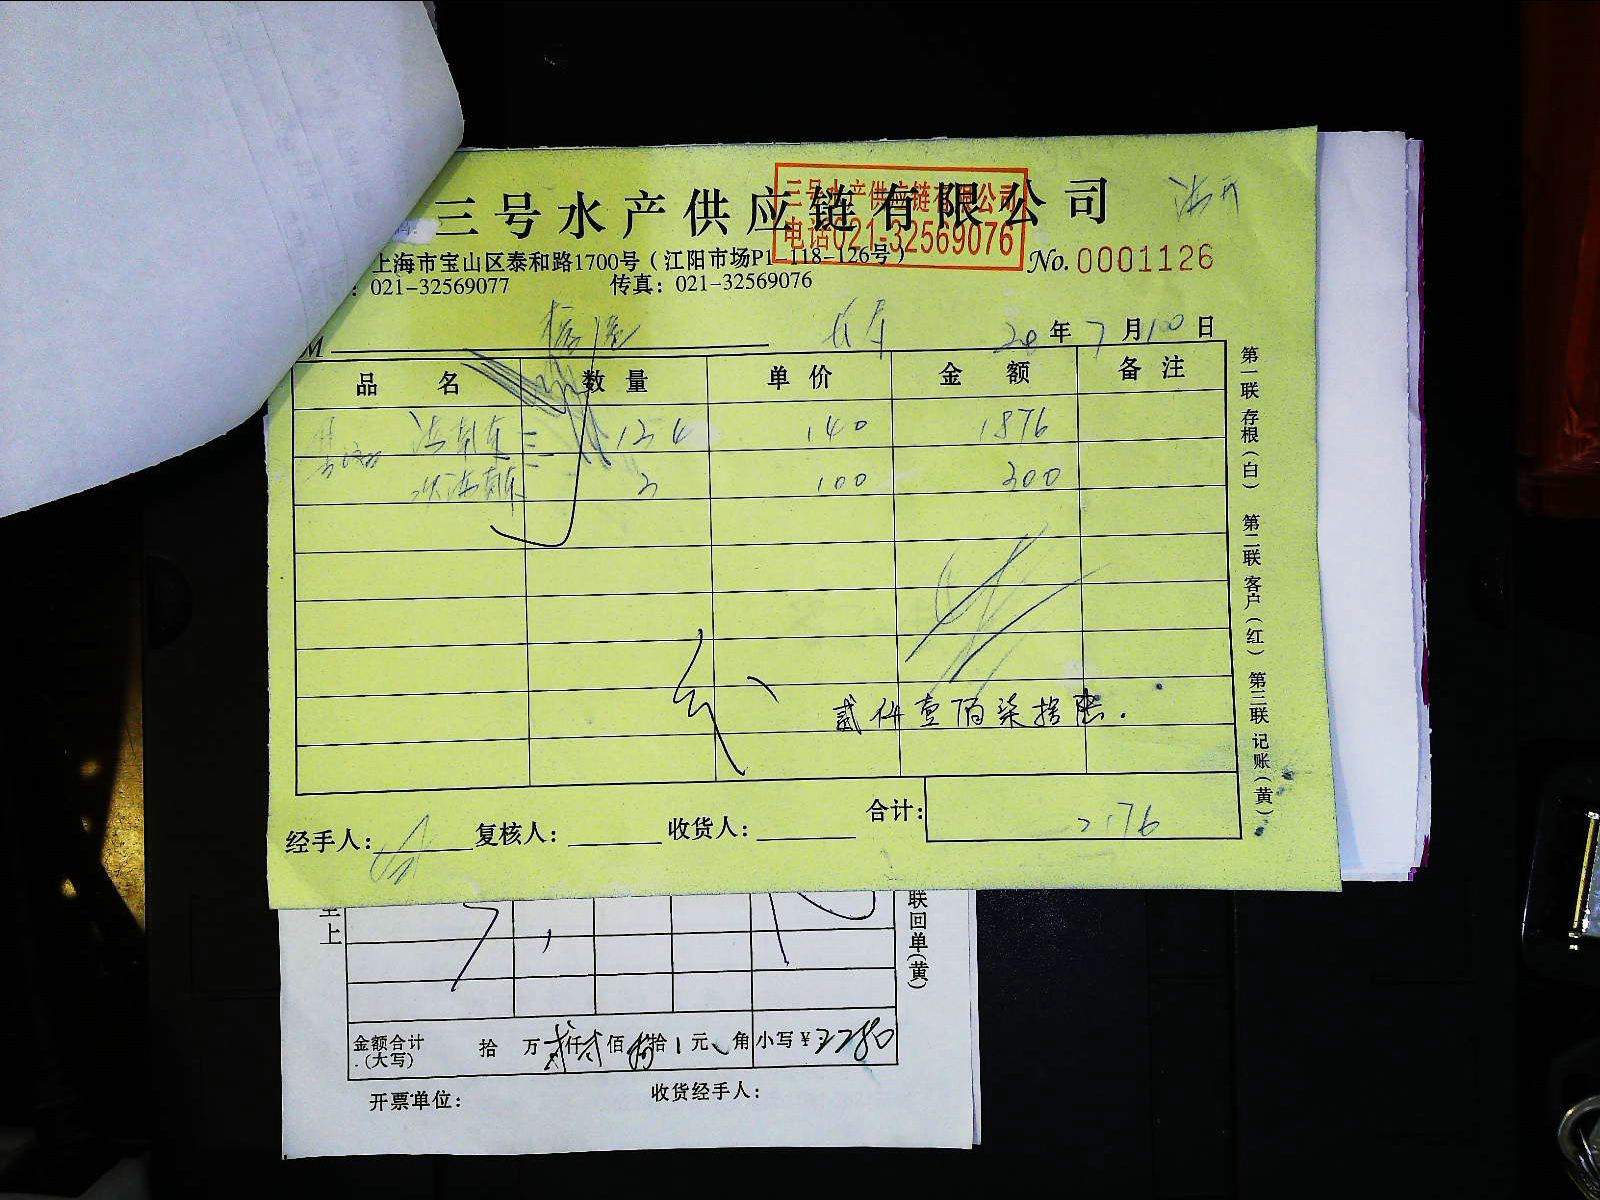 三号水产供应链有限公司
三号水产供应链有限公司
电话021-32569076
上海市宝山区泰和路1700号（江阳市场P1-118-126号）
No. 0001126
：021-32569077 传真：021-32569076
M
20年7月10日
品名 数量 单价 金额 备注
134 140 1876
3 100 300
贰仟壹佰柒拾陆.
合计：2176
经手人： 复核人： 收货人：
第一联 存根（白） 第二联 客户（红） 第三联 记账（黄）
上
联回单(黄)
金额合计(大写) 拾 万 贰仟贰佰捌拾 元 角 小写￥：2280
开票单位： 收货经手人：